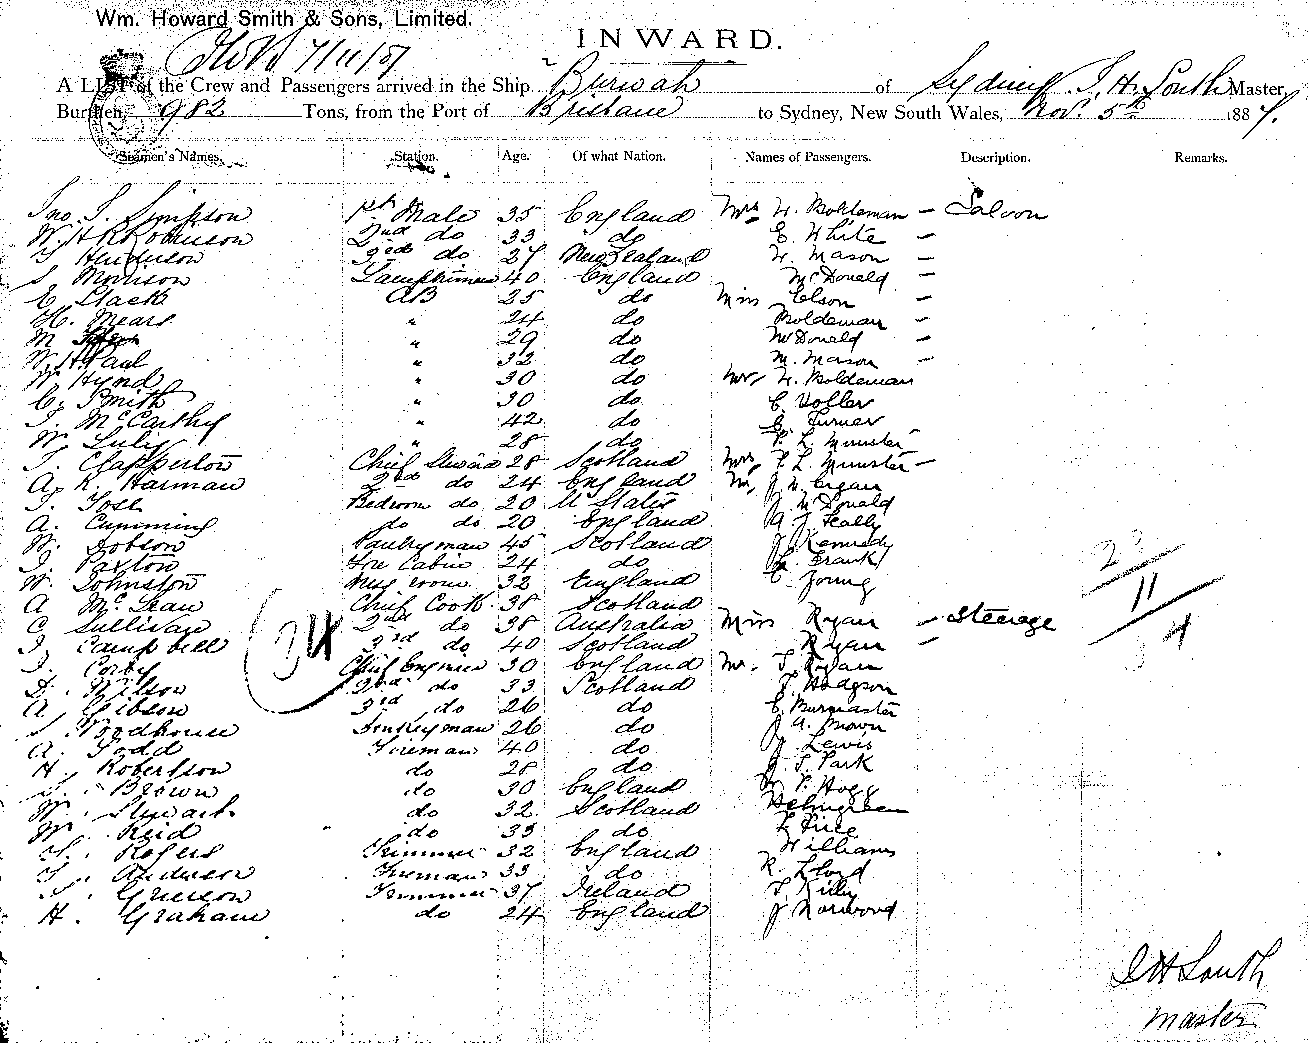 Wm. Howard Smith & Sons, Limited.
7/11/87
INWARD.
A LIST of the Crew and Passengers arrived in the Ship Burwah of Sydney J. H. South Master,
Burthen, 982 Tons, from the Port of Brisbane to Sydney, New South Wales, Nov. 5th 1887.
Seamen's Names. Station. Age. Of what Nation. Names of Passengers. Description. Remarks.
Jno S. Simpson 1st Mate 35 England Mrs W. Boldeman — Saloon
W. H. Robinson 2nd do 33 do E. White —
Henderson 3rd do 27 New Zealand W. Mason —
S. Morrison Lamptrimmer 40 England McDonald —
E. Slack AB 25 do Miss Elson —
H. Mears " 24 do Boldeman —
M " 29 do McDonald —
W. H. Paul " 32 do M. Mason —
W. Hynd " 30 do Mr W. Boldeman
C. Smith " 30 do C. Voller
J. McCarthy " 42 do E. Turner
W. Luly " 28 do F. L. Munster
T. Clapperton Chief Steward 28 Scotland Mrs F. L. Munster —
A. R. Harman 2nd do 24 England Mr J. W. Cryan
J. Tose Bedroom do 20 U States J McDonald
A. Cumming do do 20 England A J Feally
W. Dobson Pantryman 45 Scotland J Kennedy
J. Paxton Fore Cabin 24 do Frank
W. Johnston Mess room 32 England C. Young
A McLean Chief Cook 38 Scotland
C. Sullivan 2nd do 38 Australia Miss Ryan — Steerage
J. Campbell 3rd do 40 Scotland Ryan —
J. Corby Chief Engineer 30 England Mr. T Ryan
D. Wilson 2nd do 33 Scotland T. Hodgson
A. Gibson 3rd do 26 do C. Burmaster
S. Woodhouse Donkeyman 26 do J A. Brown
A. Todd Fireman 40 do J. Lewis
H. Robertson do 28 do J. S. Park
T. Brown do 30 England P. Hogg
W. Stewart do 32 Scotland Holmgreen
W. Reid do 33 do Price
T. Rogers Trimmer 32 England Williams
T. Anderson Fireman 33 do R. Lloyd
T. Grierson Trimmer 37 Ireland T. Kiley
H. Graham do 24 England J Norwood
34
23
11
34
J H South
Master